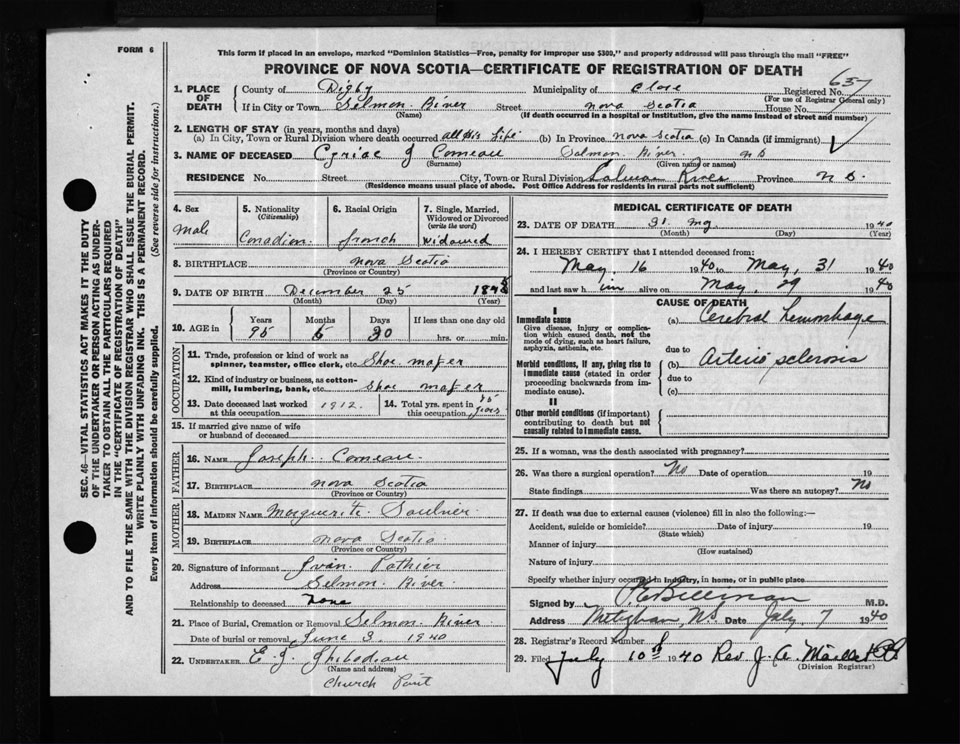 FORM 6
This form if placed in an envelope, marked "Dominion Statistics—Free, penalty for improper use $300," and properly addressed will pass through the mail "FREE"
PROVINCE OF NOVA SCOTIA—CERTIFICATE OF REGISTRATION OF DEATH
637
1. PLACE OF DEATH
County of Digby Municipality of Clare Registered No.
(For use of Registrar General only)
If in City or Town Selmon River Street nova scotia House No.
(Name) (If death occurred in a hospital or institution, give the name instead of street and number)
2. LENGTH OF STAY (in years, months and days)
(a) In City, Town or Rural Division where death occurred all his life (b) In Province nova scotia (c) In Canada (if immigrant)
3. NAME OF DECEASED Cyriac J Comeau Salmon River. n s
(Surname) (Given name or names)
RESIDENCE No. Street City, Town or Rural Division Salmon River Province N S.
(Residence means usual place of abode. Post Office Address for residents in rural parts not sufficient)
4. Sex
Male
5. Nationality
(Citizenship)
Canadian
6. Racial Origin
french
7. Single, Married, Widowed or Divorced
(write the word)
widowed
8. BIRTHPLACE nova Scotia
(Province or Country)
9. DATE OF BIRTH December 25 184
(Month) (Day) (Year)
10. AGE in
Years Months Days If less than one day old
95 6 30 hrs. or min.
OCCUPATION
11. Trade, profession or kind of work as spinner, teamster, office clerk, etc. Shoe maker
12. Kind of industry or business, as cotton-mill, lumbering, bank, etc. shoe maker
13. Date deceased last worked at this occupation 1912.
14. Total yrs. spent in this occupation years
15. If married give name of wife or husband of deceased
FATHER
16. NAME Joseph Comeau.
17. BIRTHPLACE nova Scotia
(Province or Country)
MOTHER
18. MAIDEN NAME Marguerite Saulnier
19. BIRTHPLACE nova Scotia
(Province or Country)
20. Signature of informant Ivan Pothier
Address Selmon River
Relationship to deceased None
21. Place of Burial, Cremation or Removal Selmon River
Date of burial or removal June 3, 1940
22. UNDERTAKER E. J. Thibodeau
(Name and address)
Church Point
MEDICAL CERTIFICATE OF DEATH
23. DATE OF DEATH 31 my 1940
(Month) (Day) (Year)
24. I HEREBY CERTIFY that I attended deceased from:
May, 16 1940 to May, 31 1940
and last saw him alive on May, 29 1940
CAUSE OF DEATH
I
Immediate cause
Give disease, injury or complication which caused death, not the mode of dying, such as heart failure, asphyxia, asthenia, etc.
(a) Cerebral hemorrhage
due to
Morbid conditions, if any, giving rise to immediate cause (stated in order proceeding backwards from immediate cause).
(b) Arterio sclerosis
due to
(c)
II
Other morbid conditions (if important) contributing to death but not causally related to immediate cause.
25. If a woman, was the death associated with pregnancy?
26. Was there a surgical operation? No Date of operation 19
State findings Was there an autopsy? No
27. If death was due to external causes (violence) fill in also the following:—
Accident, suicide or homicide? Date of injury 19
(State which)
Manner of injury
(How sustained)
Nature of injury
Specify whether injury occurred in industry, in home, or in public place
Signed by M.D.
Address Meteghan, N.S Date July, 7 1940
28. Registrar's Record Number
29. Filed July 10th 1940 Rev. J. A.
(Division Registrar)
SEC. 46—VITAL STATISTICS ACT MAKES IT THE DUTY
OF THE UNDERTAKER OR PERSON ACTING AS UNDER-
TAKER TO OBTAIN ALL THE PARTICULARS REQUIRED
IN THE "CERTIFICATE OF REGISTRATION OF DEATH"
AND TO FILE THE SAME WITH THE DIVISION REGISTRAR WHO SHALL ISSUE THE BURIAL PERMIT.
WRITE PLAINLY WITH UNFADING INK. THIS IS A PERMANENT RECORD.
Every item of information should be carefully supplied. (See reverse side for instructions.)